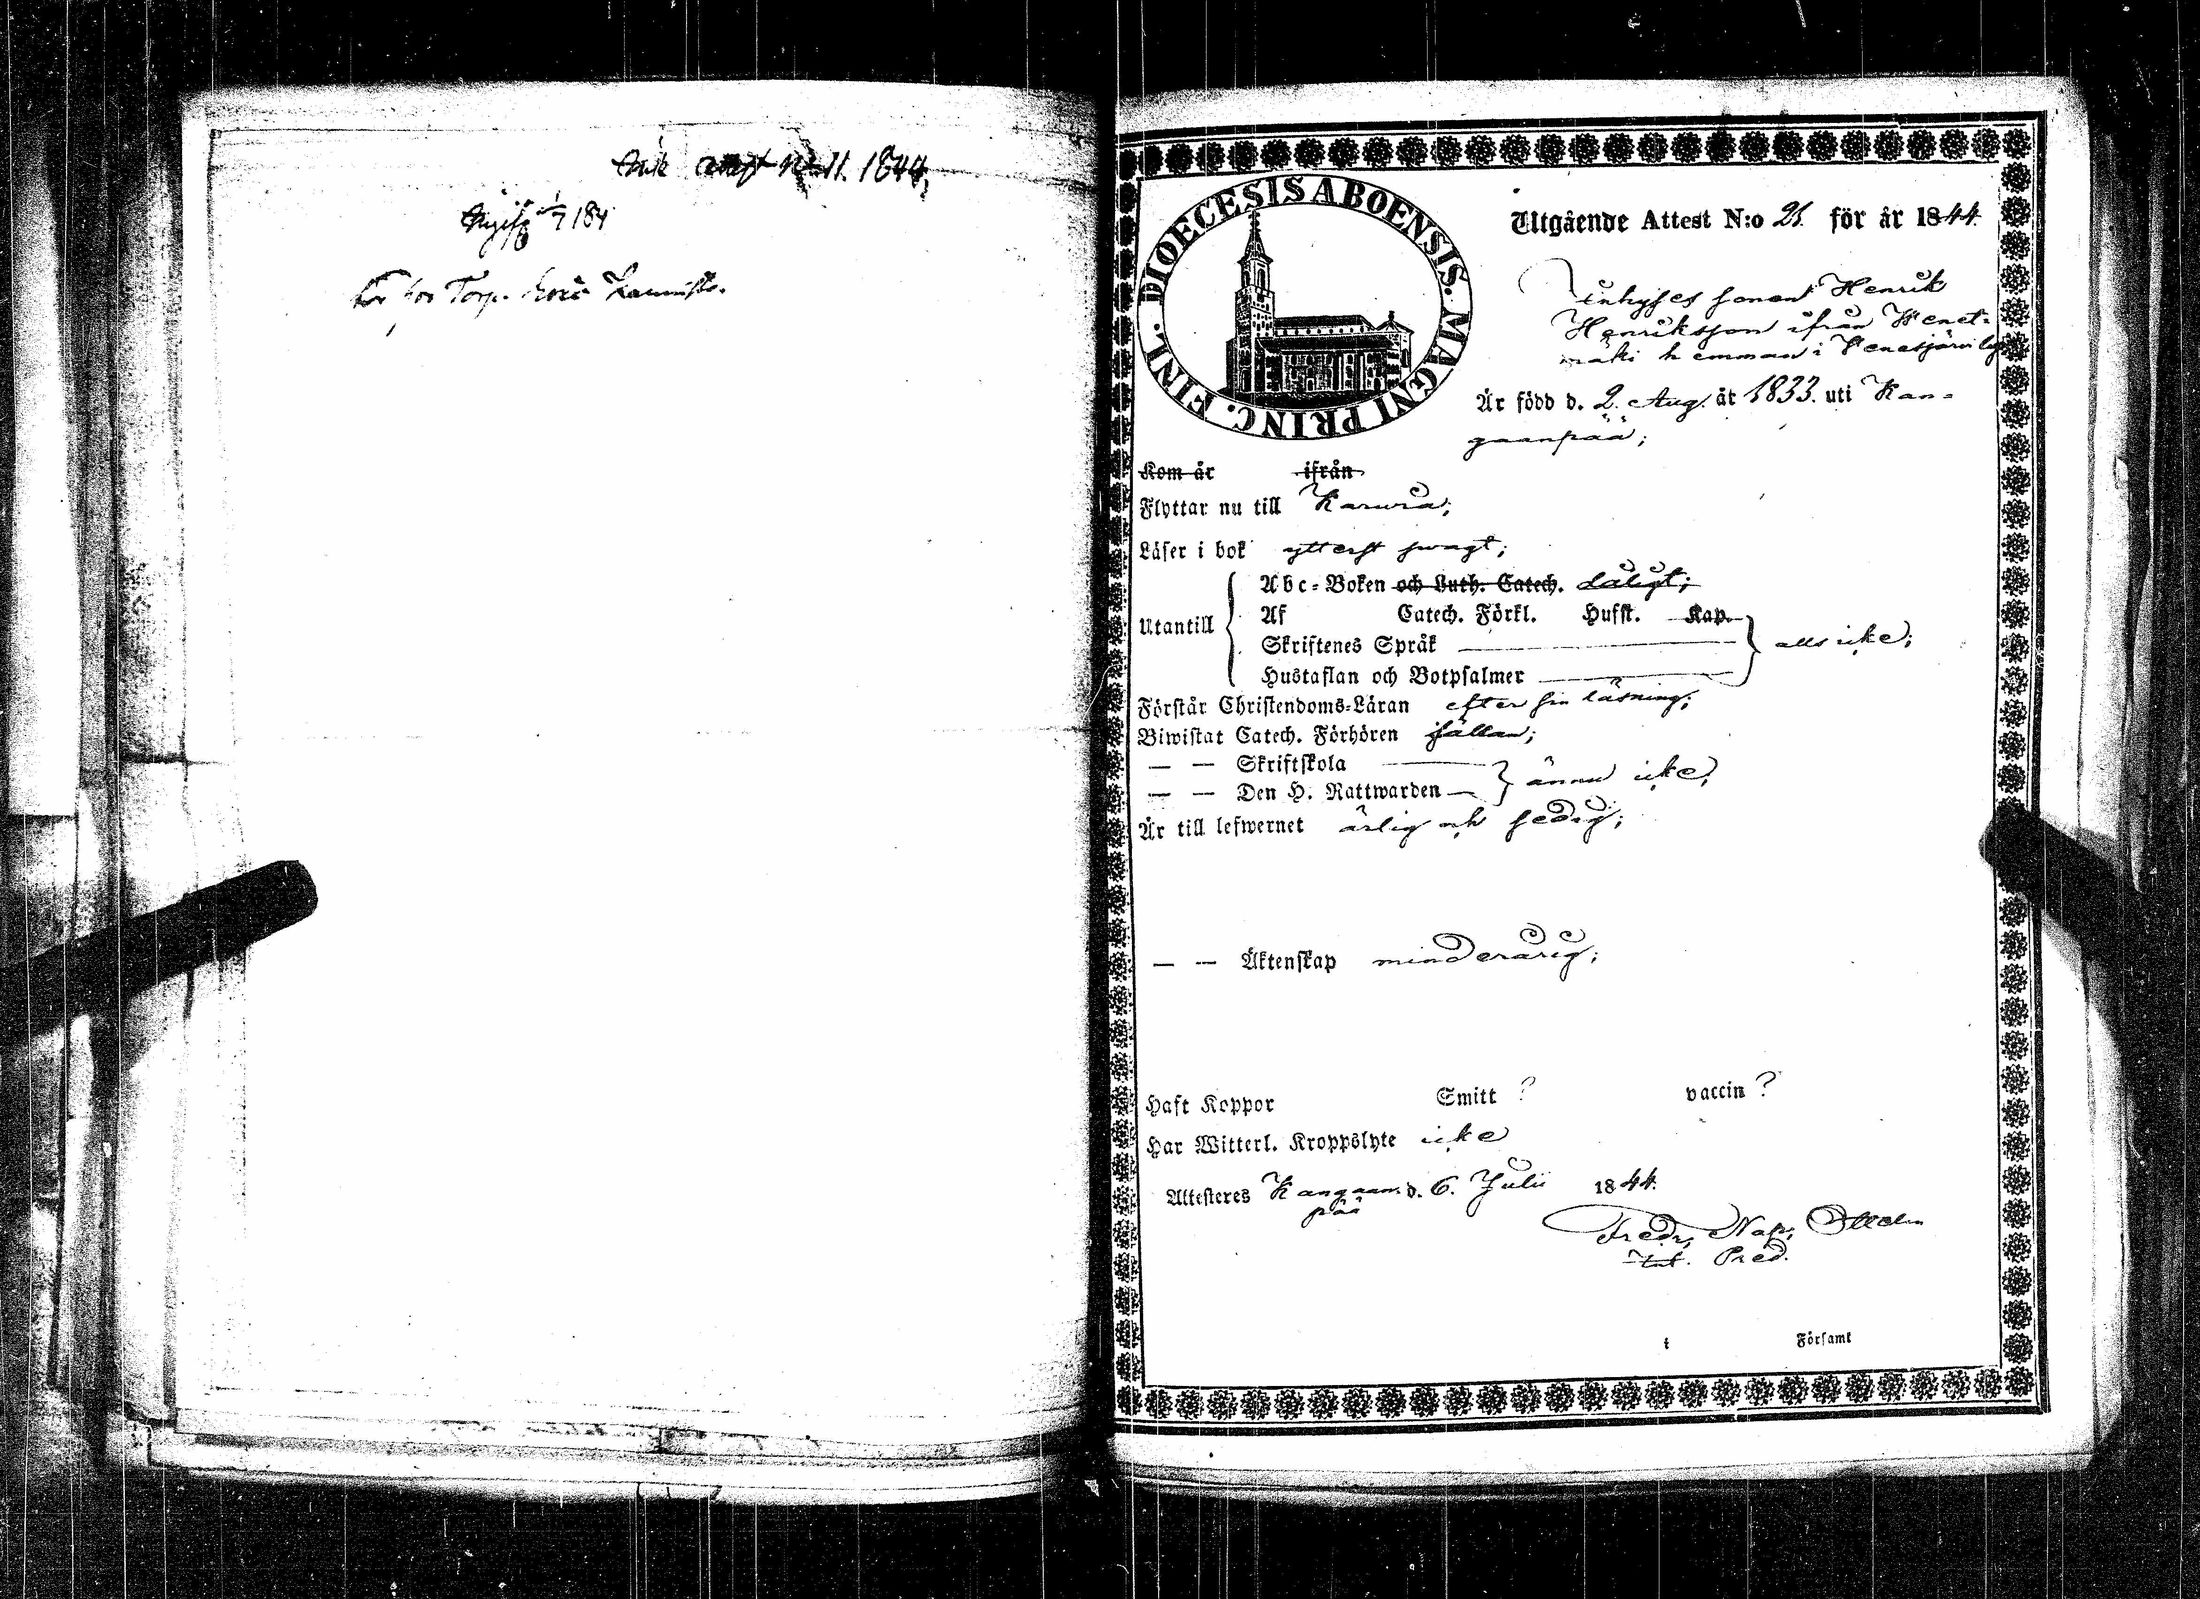 Ank attest No 11. 1844.
184
för Torp.
DIOECESIS ABOENSIS. MAGNI PRINC. FINL.
Utgående Attest N:o 21. för år 1844.
Inhyses sonen Henrik
Henriksson ifrån Wenet-
mäki hemman i Venesjärwi by
Är född d. 2. Aug. år 1833. uti Kan-
gaanpää;
Kom år ifrån
Flyttar nu till Karwia;
Läser i bok ytterst swagt;
Utantill
Abc-Boken och Luth. Catech. dåligt;
Af Catech. Förkl. Hufst. Kap.
Skriftenes Språk
alls icke;
Hustaflan och Botpsalmer
Förstår Christendoms-Läran efter sin läsning;
Biwistat Catech. Förhören sällan;
— — Skriftskola
ännu icke;
— — Den H. Nattwarden
Är till lefwernet ärlig och sedig;
— — Äktenskap minderårig;
Haft Koppor Smitt ? vaccin ?
Har Witterl. Kroppslyte icke
Attesteres Kangaan- d. 6. Julii 1844.
pää
Fredr. Nap.
Pred.
i Församl